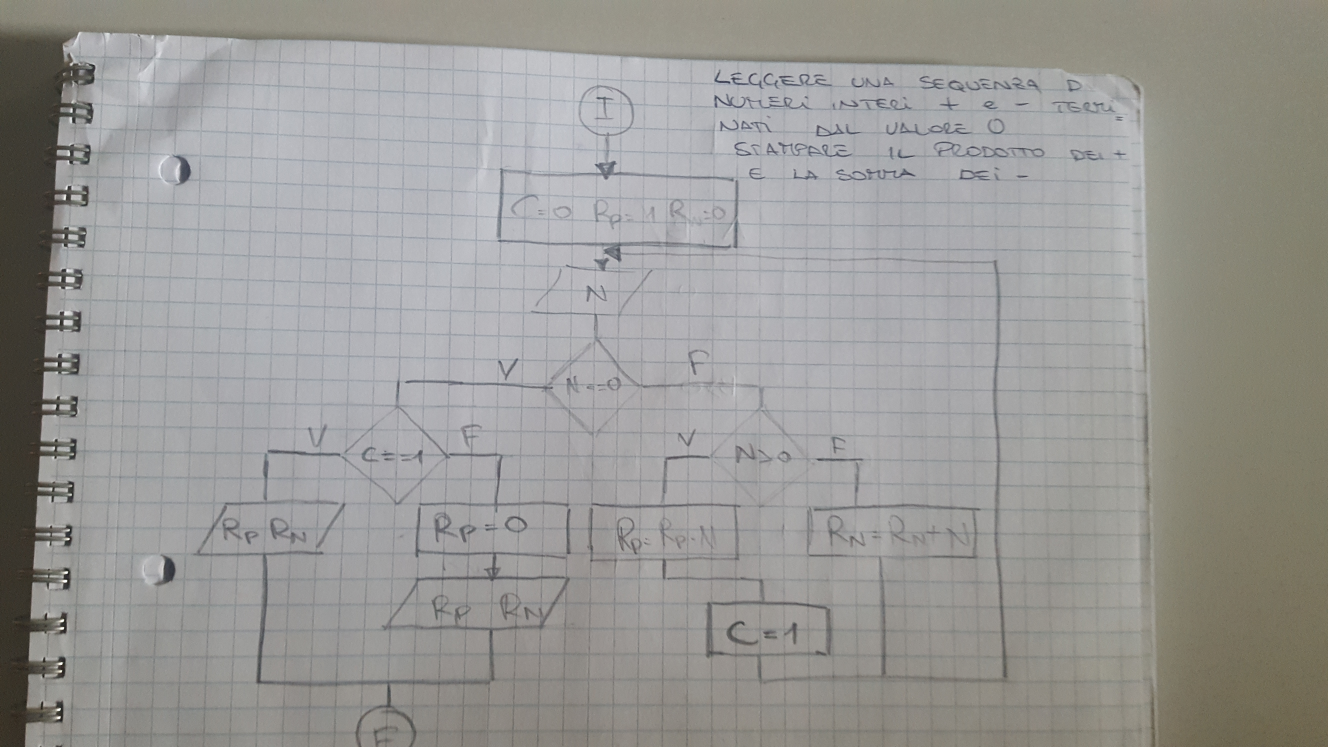 LEGGERE UNA SEQUENZA D
NUMERI INTERI + e - TERMI=
NATI DAL VALORE 0
STAMPARE IL PRODOTTO DEI +
E LA SOMMA DEI -
I
C=0 RP=1 RN=0
N
V N==0 F
V C==1 F
V N>0 F
RP RN
RP=0
RP=RP·N
RN=RN+N
RP RN
C=1
F